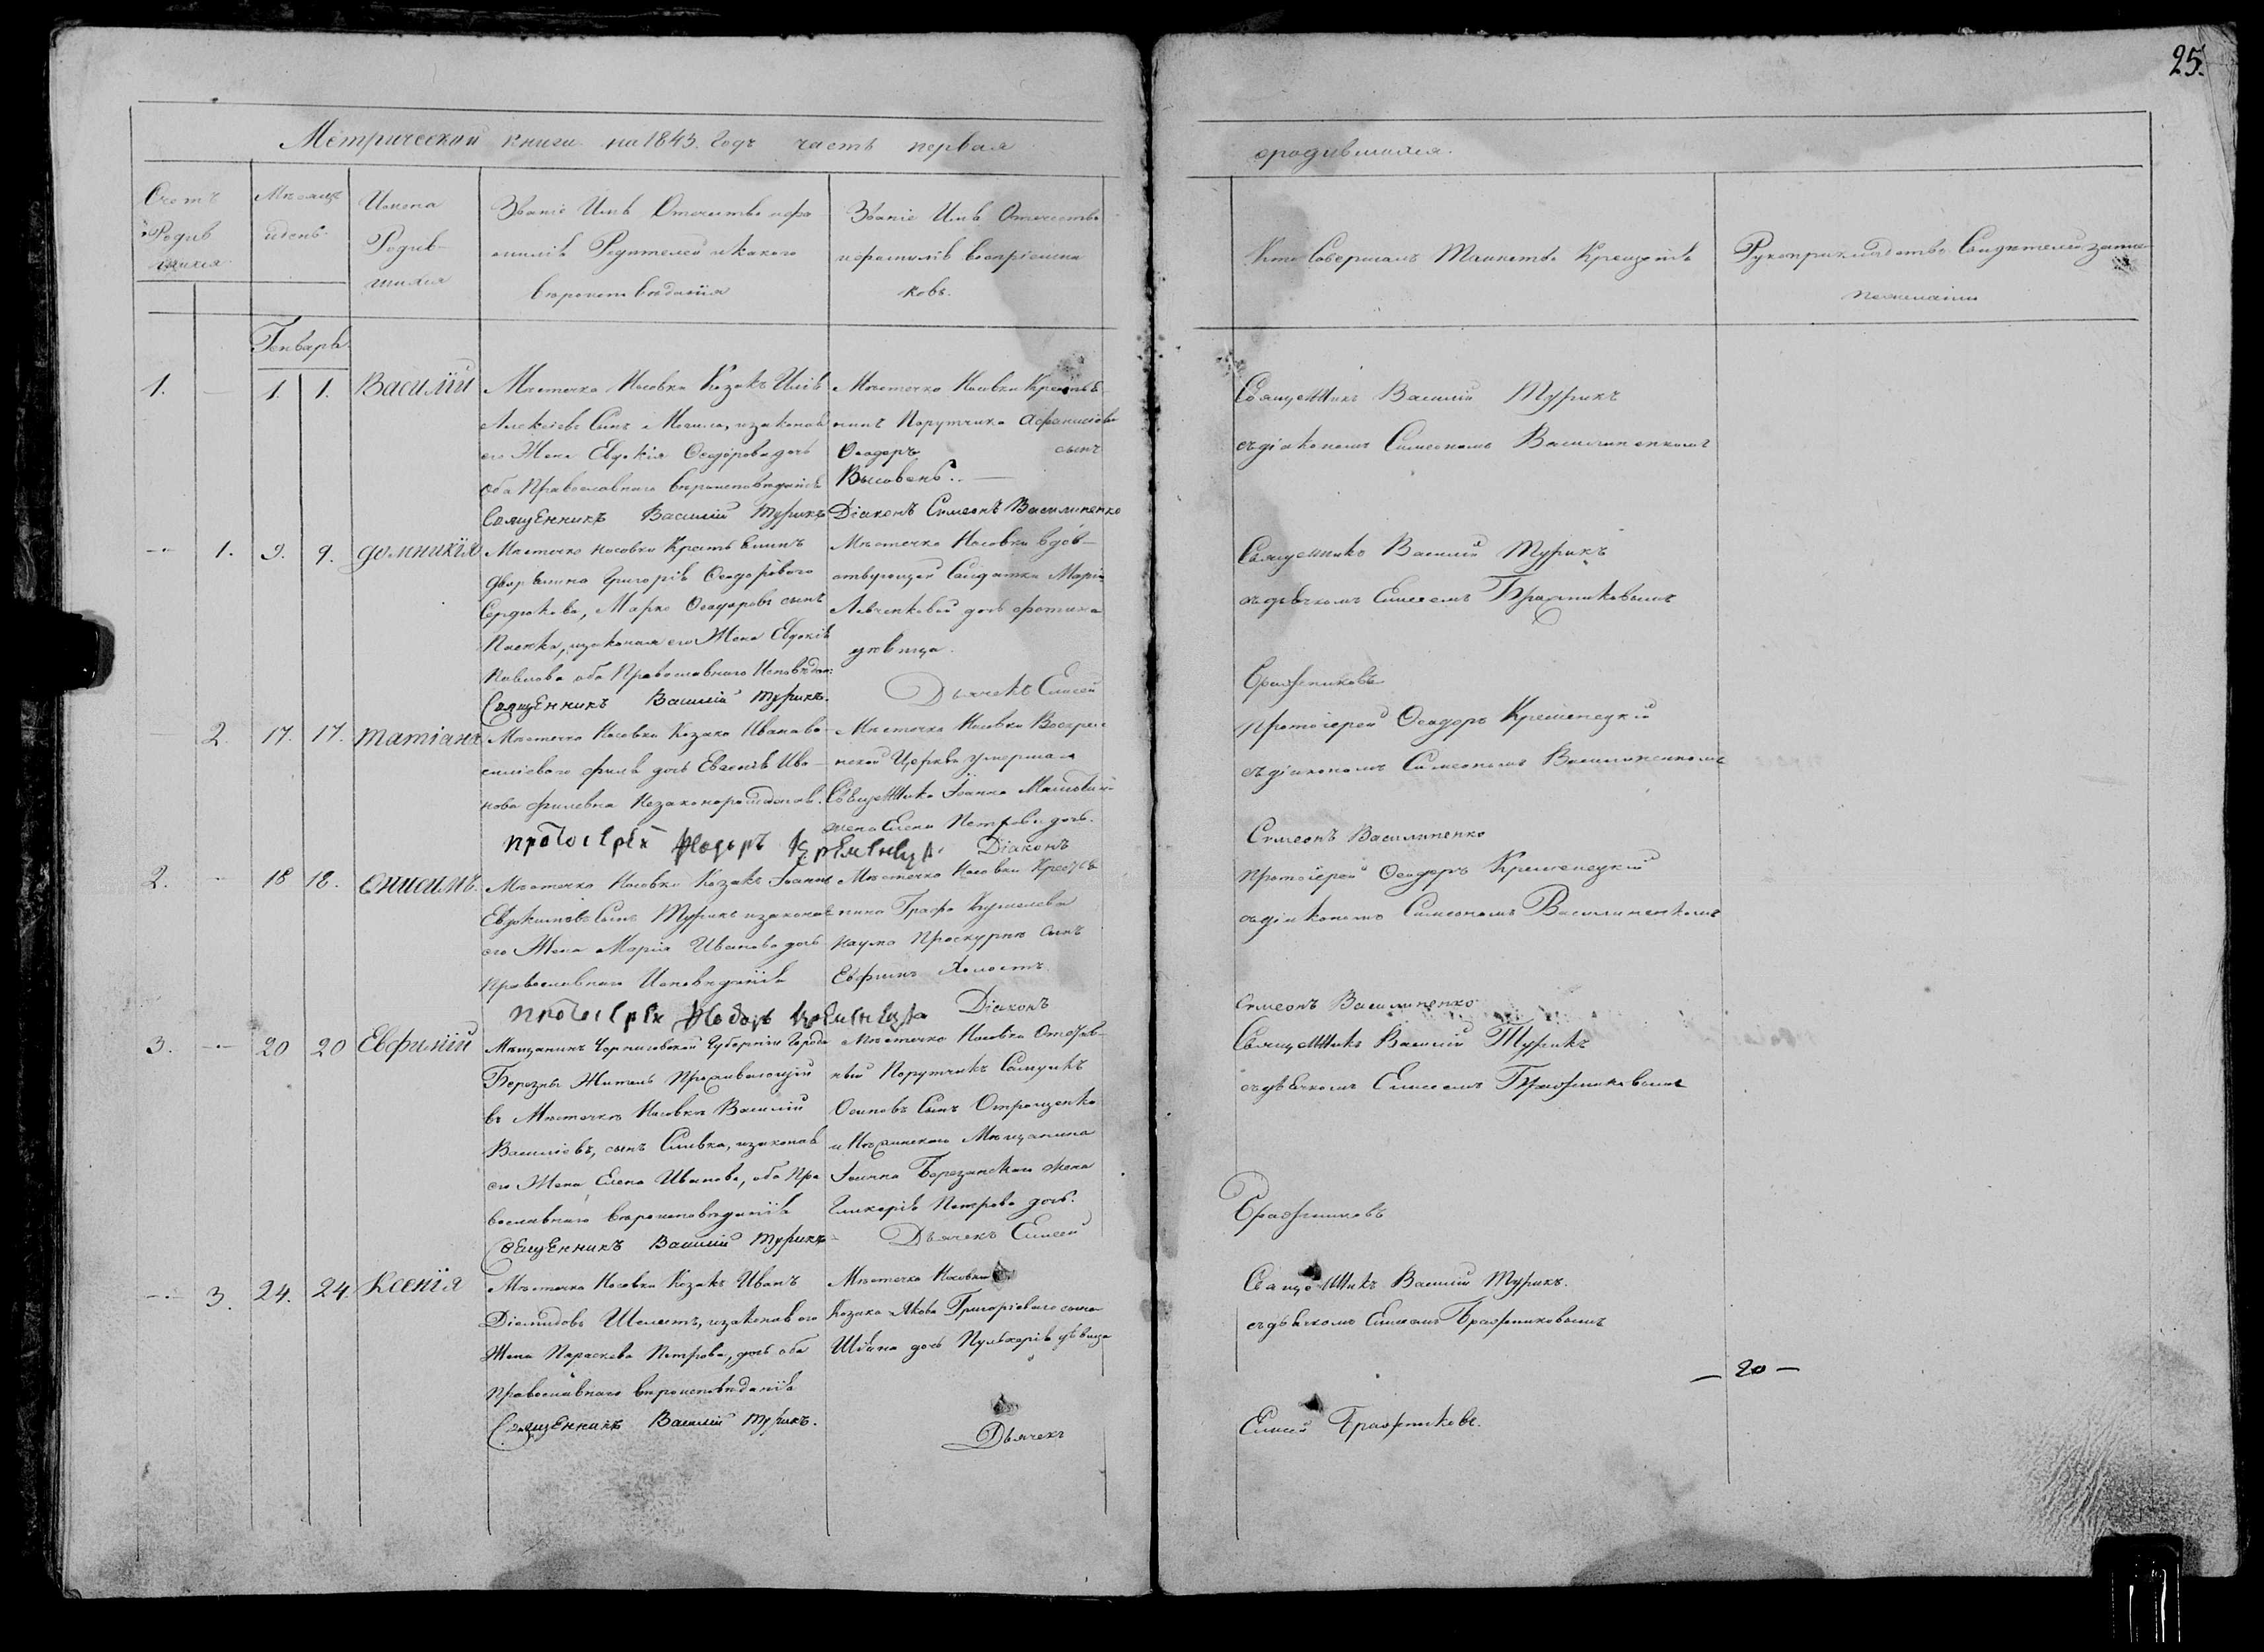 25.
Метрической книги на 1843. Годъ часть первая
ородившихся.
Счетъ
Родив
шихся.
Мѣсяцъ
идень.
Имена
Родив-
шихся
Званіе Имя Отечество ифа
милія Родителей икакого
вѣроисповѣданія
Званіе Имя Отечество
ифамилія воспріемни
ковъ.
Кто Совершалъ Таинство Крещенія
Рукоприкладство Свидѣтелей запис
пожеланію
Генварь.
1. — 1. 1. Василій
Мѣстечка Носовки Козакъ Илія
Алексіевъ Сынъ Могила, изаконая
его Жена Евдокія Ѳеодорова дочь
Оба Православнаго вѣроисповѣданія
Священникъ Василій Турикъ
Мѣстечка Носовки Крестья-
нинъ Порутчика Афанасіева
Ѳеодоръ сынъ
Высовень. —
Діаконъ Симеонъ Василиненко
Священникъ Василій Турикъ
съдіакономъ Симеономъ Василиненкомъ
— 1. 9. 9. Домникія
Мѣстечка Носовки Крестьянинъ
дворянина Григорія Ѳеодорового
Сердюкова, Марко Ѳеодоровъ сынъ
изаконая его Жена Евдокія
Павлова оба Православнаго Исповѣдан:
Священникъ Василій Турикъ.
Мѣстечка Носовки вдов-
ствующей Солдатки Маріи
Левченковой дочь Фотина
дѣвица.
Дьячекъ Елисей
Священникъ Василій Турикъ
съдьячкомъ Елисеемъ Бражниковымъ
Бражниковъ
— 2. 17. 17. Татіана
Мѣстечка Носовки Козака Ивана Ва-
силіевого Филя дочь Евгенія Ива-
нова Филевна Незаконорожденная.
Протоіерей Ѳеодоръ Кременецкій
Мѣстечка Носовки Воскресе
нской Церкви умершаго
Священника Іоанна
жена Елена Петрова дочь.
Діаконъ
Протоіерей Ѳеодоръ Кременецкій
съдіакономъ Симеономъ Василиненкомъ
Симеонъ Василиненко
2. — 18 18. Онисимъ.
Мѣстечка Носовки Козакъ Іоаннъ
Евдокимовъ Сынъ Турикъ изаконая
его Жена Марія Иванова дочь
Православнаго Исповѣданія
Протоіерей Ѳеодоръ Кременецкій
Мѣстечка Носовки Крестья
нина Графа Кушелева
Наума Проскурни Сынъ
Евфимъ Холостъ
Діаконъ
Протоіерей Ѳеодоръ Кременецкій
съдіакономъ Симеономъ Василиненкомъ
Симеонъ Василиненко
3. — 20 20 Евфимій
Мѣщанинъ Черниговской Губерніи Города
Борзны Житель Проживающій
въ Мѣстечкѣ Носовкѣ Василій
Василіевъ, сынъ Сливка, изаконая
его Жена Елена Иванова, оба Пра
вославнаго вѣроисповѣданія
Священникъ Василій Турикъ
Мѣстечка Носовки Отстав-
ный Порутчикъ Самуилъ
Осиповъ Сынъ Отрощенко
и Нѣжинского Мѣщанина
Іоанна Березанского жена
Гликерія Петрова дочь.
Дьячекъ Елисей
Священникъ Василій Турикъ
съдьячкомъ Елисеемъ Бражниковымъ
Бражниковъ
— 3. 24. 24. Ксенія
Мѣстечка Носовки Козакъ Иванъ
Діомидовъ Шелестъ, изаконая его
Жена Параскева Петрова, дочь оба
Православнаго вѣроисповѣданія
Священникъ Василій Турикъ.
Мѣстечка Носовки
Козака Якова Григоріевого сына
дочь Пулхерія дѣвица
Дьячекъ
Священникъ Василій Турикъ.
съдьячкомъ Елисеемъ Бражниковымъ
— 20 —
Елисей Бражниковъ.